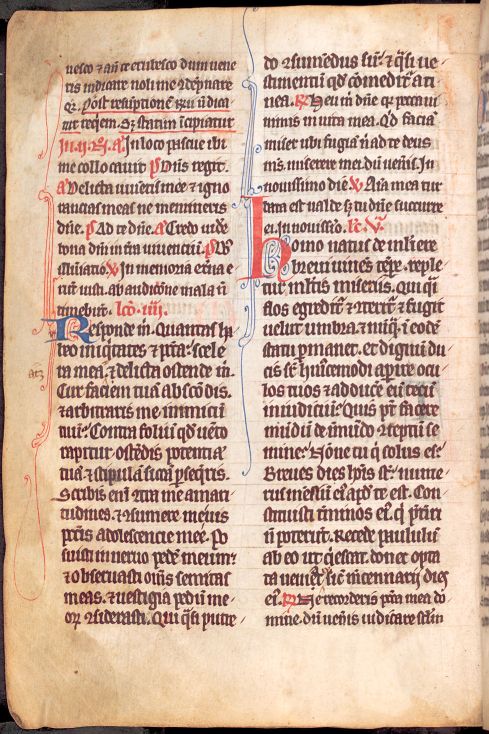 uesco et an̄ te erubesco dum uene
ris iudicare noli me ɔdēpnare
Qr̄. Post resūptionē ℟ nō dica
tur reqēm. Sʒ statim īcipiatur
In ij. N̄. A. In loco pascue ibi
me collocauit. P Dn̄s regit.
A Delicta iuuētutis mee ⁊ igno
rantias meas ne memineris
dn̄e. P Ad te dn̄e. A Credo uide
bona dn̄i in t̄ra uiuentiū. P
illūinatio. V In memoria et̄na e
rūt iusti. ab auditiōne mala n̄
timebūt. Lc̄o. iiij.
Responde m̄. Quantas ha
beo iniq̄tates ⁊ pc̄ca. scele
ra mea. ⁊ delicta ostende m̄.
Cur faciem tuā abscōdis.
⁊ arbitraris me inimicū
tuū. Contra foliū qd̄ uēto
rapitur ostēdis potentiā
tuā. ⁊ stipulā siccā ꝑseq̄ris.
Scribis enī ɔtra me amari
tudines. ⁊ ɔsumere me uis
pcc̄is adolescentie mee. Po
suisti in neruo pedē meum.
⁊ obseruasti om̄s semitas
meas. ⁊ uestigia pedū me
or̄ ɔsiderasti. Qui q̄si putre
do ɔsumēdus sū. ⁊ q̄si ue
stimentū qd̄ comedit̄ a ti
nea. ℟ Heu m̄ dn̄e qr̄ peccaui
nimis in uita mea. Qd̄ faciā
miser ubi fugiā n̄ ad te deus
m̄s. miserere mei dū uen̄is. In
nouissimo die. V Aīa mea tur
bata est ualde sʒ tu dn̄e succurre
ei. In nouissīo. Lc̄. V.
Homo natus de muliere
breui uiuēs tp̄re. reple
tur multis miseriis. Qui q̄si
flos egredit̄ ⁊ ɔterit̄ ⁊ fugit
uelut umbra. ⁊ nūq̄ in eodē
statu ꝑmanet. et dignū du
cis sr̄ huiuscemodi aperire ocu
los tuos ⁊ adducē eū tecū
in iudiciū. Quis pt̄ facere
mūdū de īmūdo ɔceptū se
mine. Nōne tu q̄ solus es.
Breues dies hoīs st̄. nume
rus mēsiū ei apd̄ te est. Con
stituisti t̄minos ei. q̄ p̄t̄iri
n̄ poterūt. Recede paululū
ab eo ut q̄escat. donec opta
ta ueniet sic̄ mercennarij dies
ei. ℟ Ne recorderis pcc̄a mea do
mine. Dū uen̄is iudicare sc̄lm